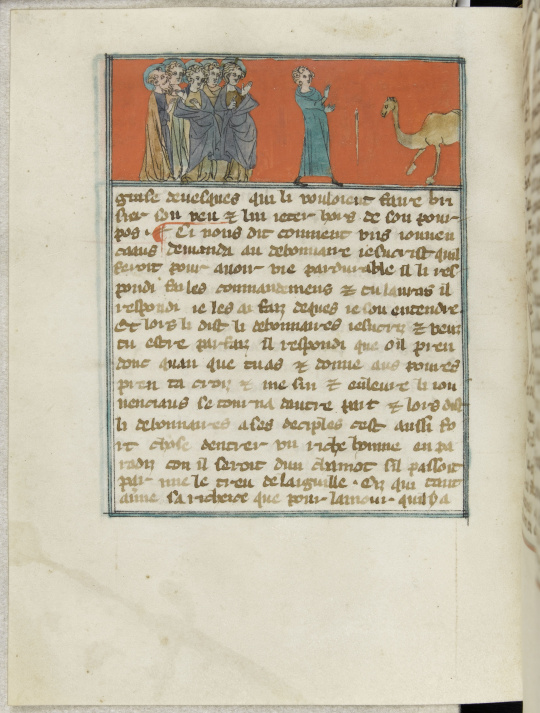 guise devesques qui li vouloient faire bri
sier son veu & lui ieter hors de son pour
pos. Ci nous dit comment uns iouuen
ciaus demanda au debonnaire iesucrist quil
feroit pour auoir vie pardurable il li res
pondi fai les commandemens & tu lauras il
respondi ie les ai faiz desques ie sou entendre
Et lors li dist li debonnaires iesucriz & veuz
tu estre parfaiz il respondi que oil pren
donc quan que tu as & donne aus poures
pren ta croiz & me siu & euleure li iou
uenciaus se tourna dautre part & lors dist
li debonnaires a ses deciples cest aussi fo
rt chose dentrer un riche homme en pa
radiz con il seroit dun chamot sil passoit
par mie le treu de laiguille. Or qui tant
aime sa richece que pour lamour quil i a